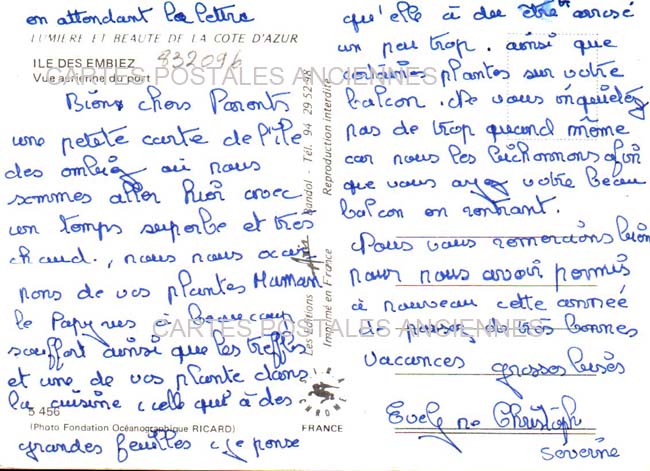 en attendant la lettre
LUMIERE ET BEAUTE DE LA COTE D'AZUR
832096
ILE DES EMBIEZ
Vue aérienne du port
CARTES POSTALES ANCIENNES
Biens chers Parents
une petite carte de l'ile
des ombiez où nous
sommes aller hier avec
un temps superbe et très
chaud., nous nous occu-
pons de vos plantes Maman
le Papyrus à beaucoup
souffert ainsi que les treffles
et une de vos plante dans
la cuisine celle qui à des
5 456
(Photo Fondation Océanographique RICARD)
grandes feuilles je pense
Les Editions Bandol - Tél. 94 29 52 98
Imprimé en France Reproduction interdite
FRANCE
qu'elle à du être arrosé
un peu trop. ainsi que
certaines plantes sur votre
balcon. Ne vous inquietez
pas de trop quand même
car nous les bichonnons afin
que vous ayez votre beau
balcon en rentrant.
Nous vous remercions bien
pour nous avoir permis
à nouveau cette année
de passer de très bonnes
CARTES POSTALES ANCIENNES
vacances grosses bises
Evelyne Christoph
Severine